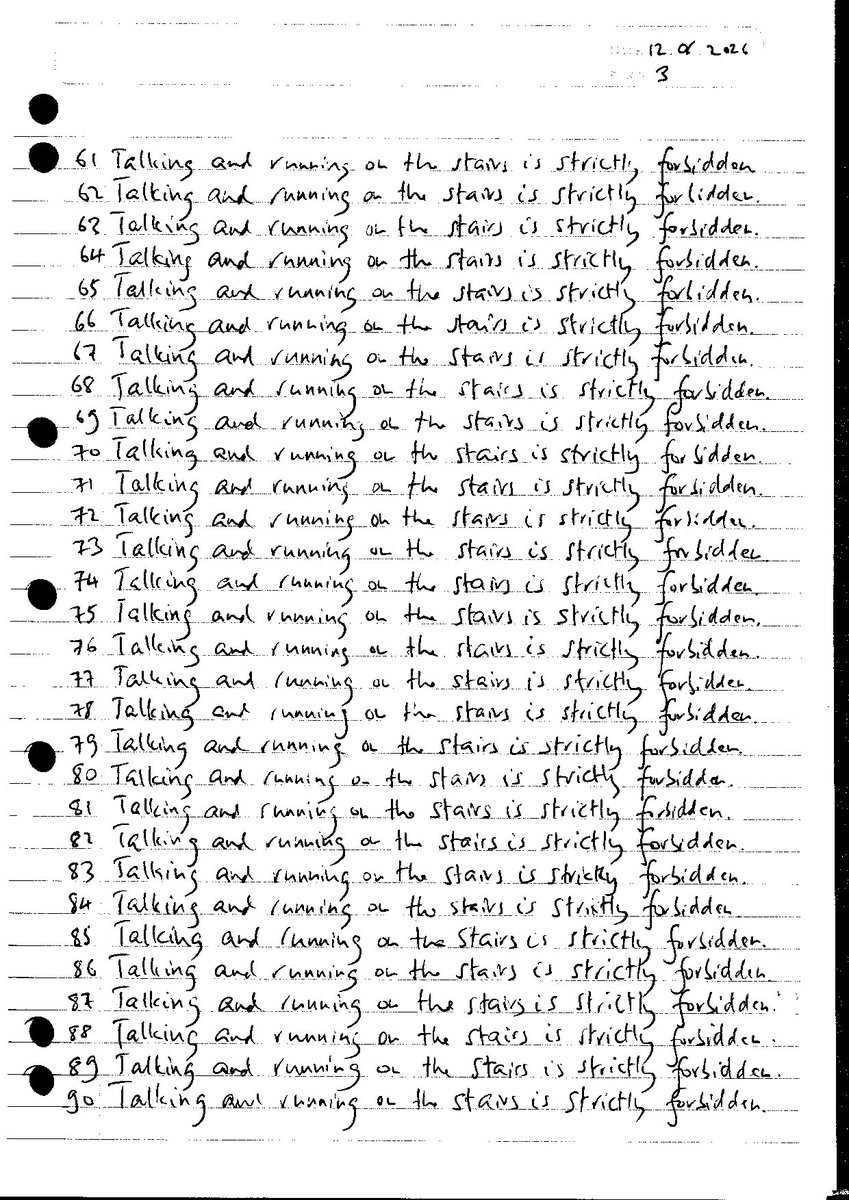 12.08.2026
3
61 Talking and running on the stairs is strictly forbidden
62 Talking and running on the stairs is strictly forbidden.
63 Talking and running on the stairs is strictly forbidden.
64 Talking and running on the stairs is strictly forbidden.
65 Talking and running on the stairs is strictly forbidden.
66 Talking and running on the stairs is strictly forbidden.
67 Talking and running on the stairs is strictly forbidden.
68 Talking and running on the stairs is strictly forbidden.
69 Talking and running on the stairs is strictly forbidden.
70 Talking and running on the stairs is strictly forbidden.
71 Talking and running on the stairs is strictly forbidden.
72 Talking and running on the stairs is strictly forbidden.
73 Talking and running on the stairs is strictly forbidden.
74 Talking and running on the stairs is strictly forbidden.
75 Talking and running on the stairs is strictly forbidden.
76 Talking and running on the stairs is strictly forbidden.
77 Talking and running on the stairs is strictly forbidden.
78 Talking and running on the stairs is strictly forbidden.
79 Talking and running on the stairs is strictly forbidden.
80 Talking and running on the stairs is strictly forbidden.
81 Talking and running on the stairs is strictly forbidden.
82 Talking and running on the stairs is strictly forbidden.
83 Talking and running on the stairs is strictly forbidden.
84 Talking and running on the stairs is strictly forbidden
85 Talking and running on the stairs is strictly forbidden.
86 Talking and running on the stairs is strictly forbidden.
87 Talking and running on the stairs is strictly forbidden.
88 Talking and running on the stairs is strictly forbidden.
89 Talking and running on the stairs is strictly forbidden.
90 Talking and running on the stairs is strictly forbidden.